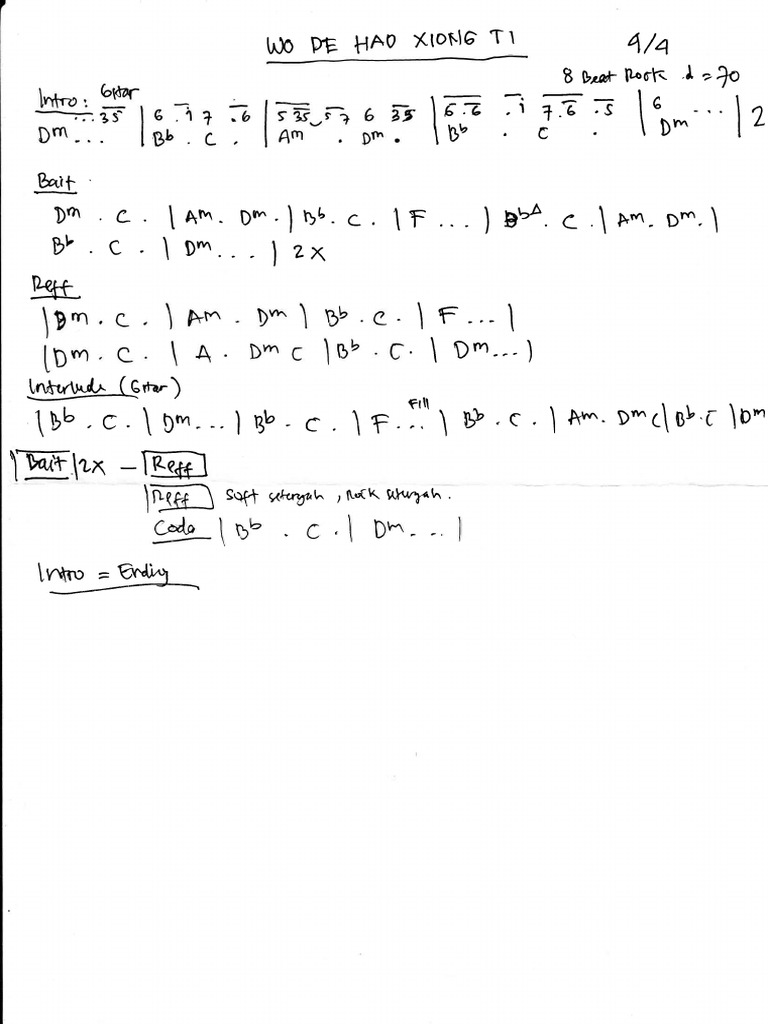 WO DE HAO XIONG TI 4/4
8 Beat Rock ♩ = 70
Intro: Gitar
. . . 35 | 6 . i 7 . 6 | 5 35 5 7 6 35 | 6 . 6 . i 7 . 6 . 5 | 6 . . . | 2
Dm . . . | Bb . C . | Am . Dm . | Bb . C . | Dm
Bait
Dm . C . | Am . Dm . | Bb . C . | F . . . | BbΔ . C . | Am . Dm . |
Bb . C . | Dm . . . | 2X
Reff
| Dm . C . | Am . Dm | Bb . C . | F . . . |
| Dm . C . | A . Dm C | Bb . C . | Dm . . . |
Interlude (Gitar)
Fill
| Bb . C . | Dm . . . | Bb . C . | F . . . | Bb . C . | Am . Dm C | Bb . C | Dm
| Bait | 2X – Reff
Reff Soft setengah , Rock setengah .
Coda | Bb . C . | Dm . . . |
Intro = Ending